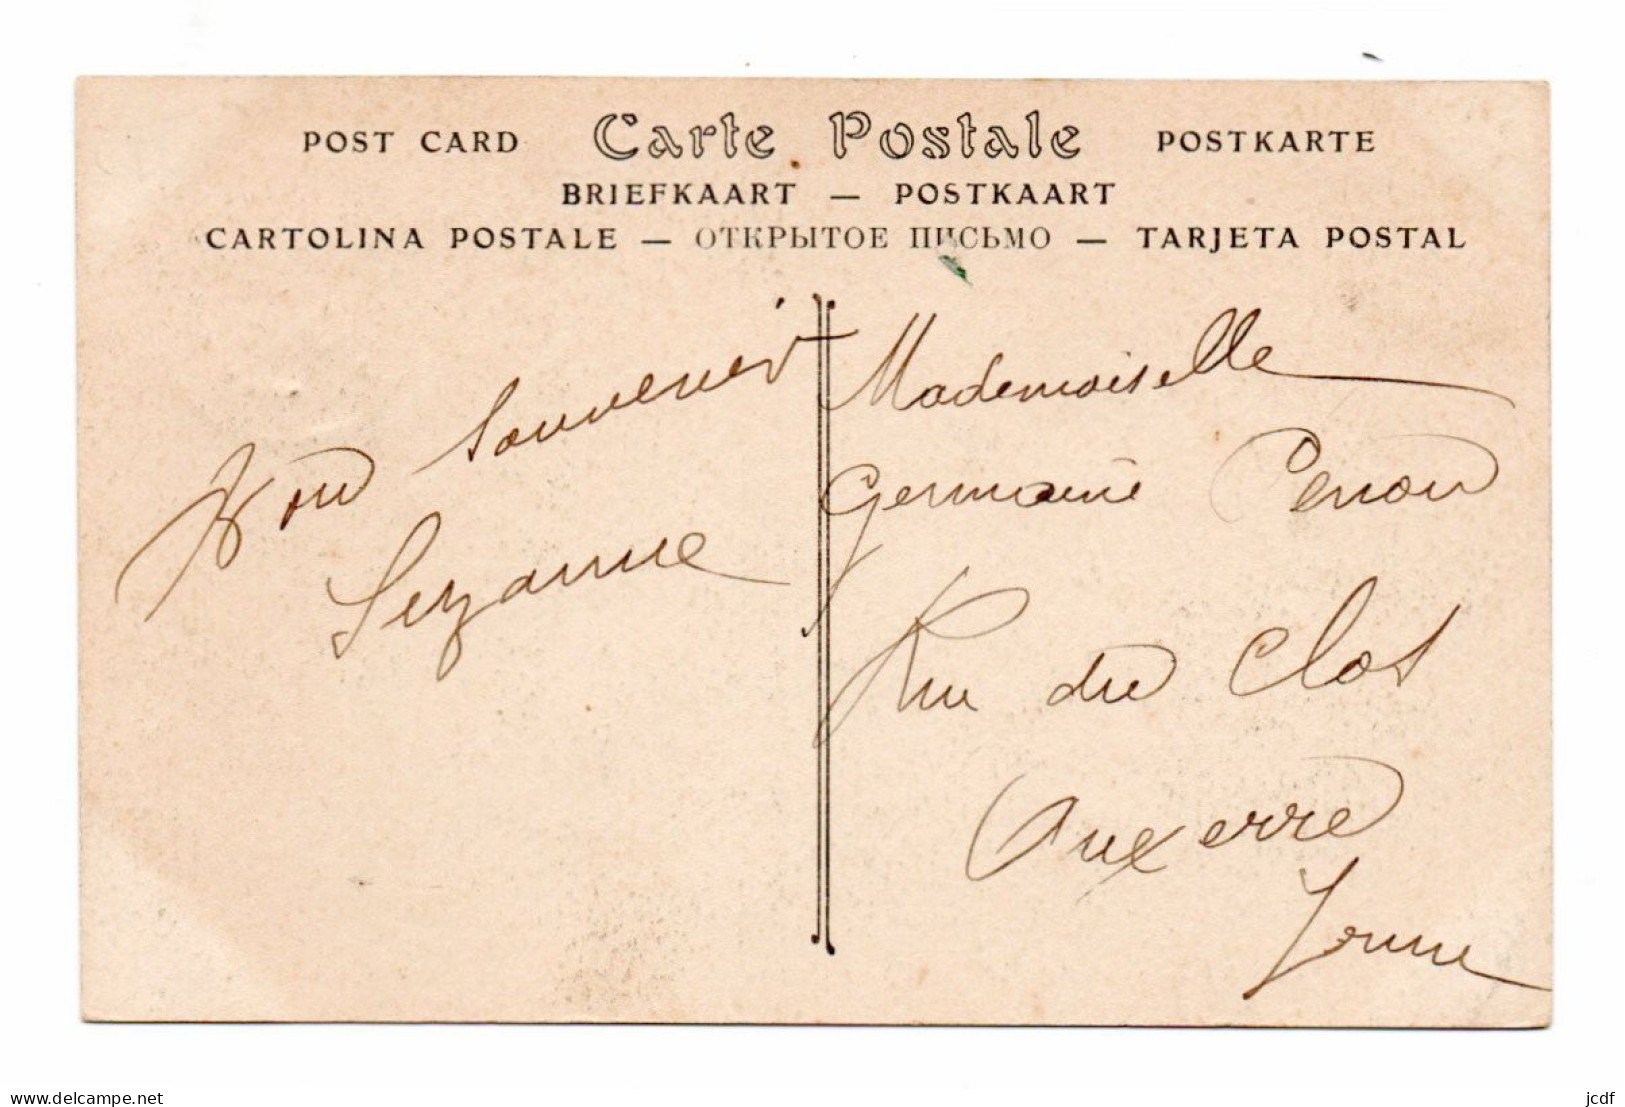 POST CARD Carte Postale POSTKARTE
BRIEFKAART — POSTKAART
CARTOLINA POSTALE — ОТКРЫТОЕ ПИСЬМО — TARJETA POSTAL
Bon Souvenir
Suzanne
Mademoiselle
Germaine
Rue du Clos
Auxerre
Yonne
www.delcampe.net
jcdf